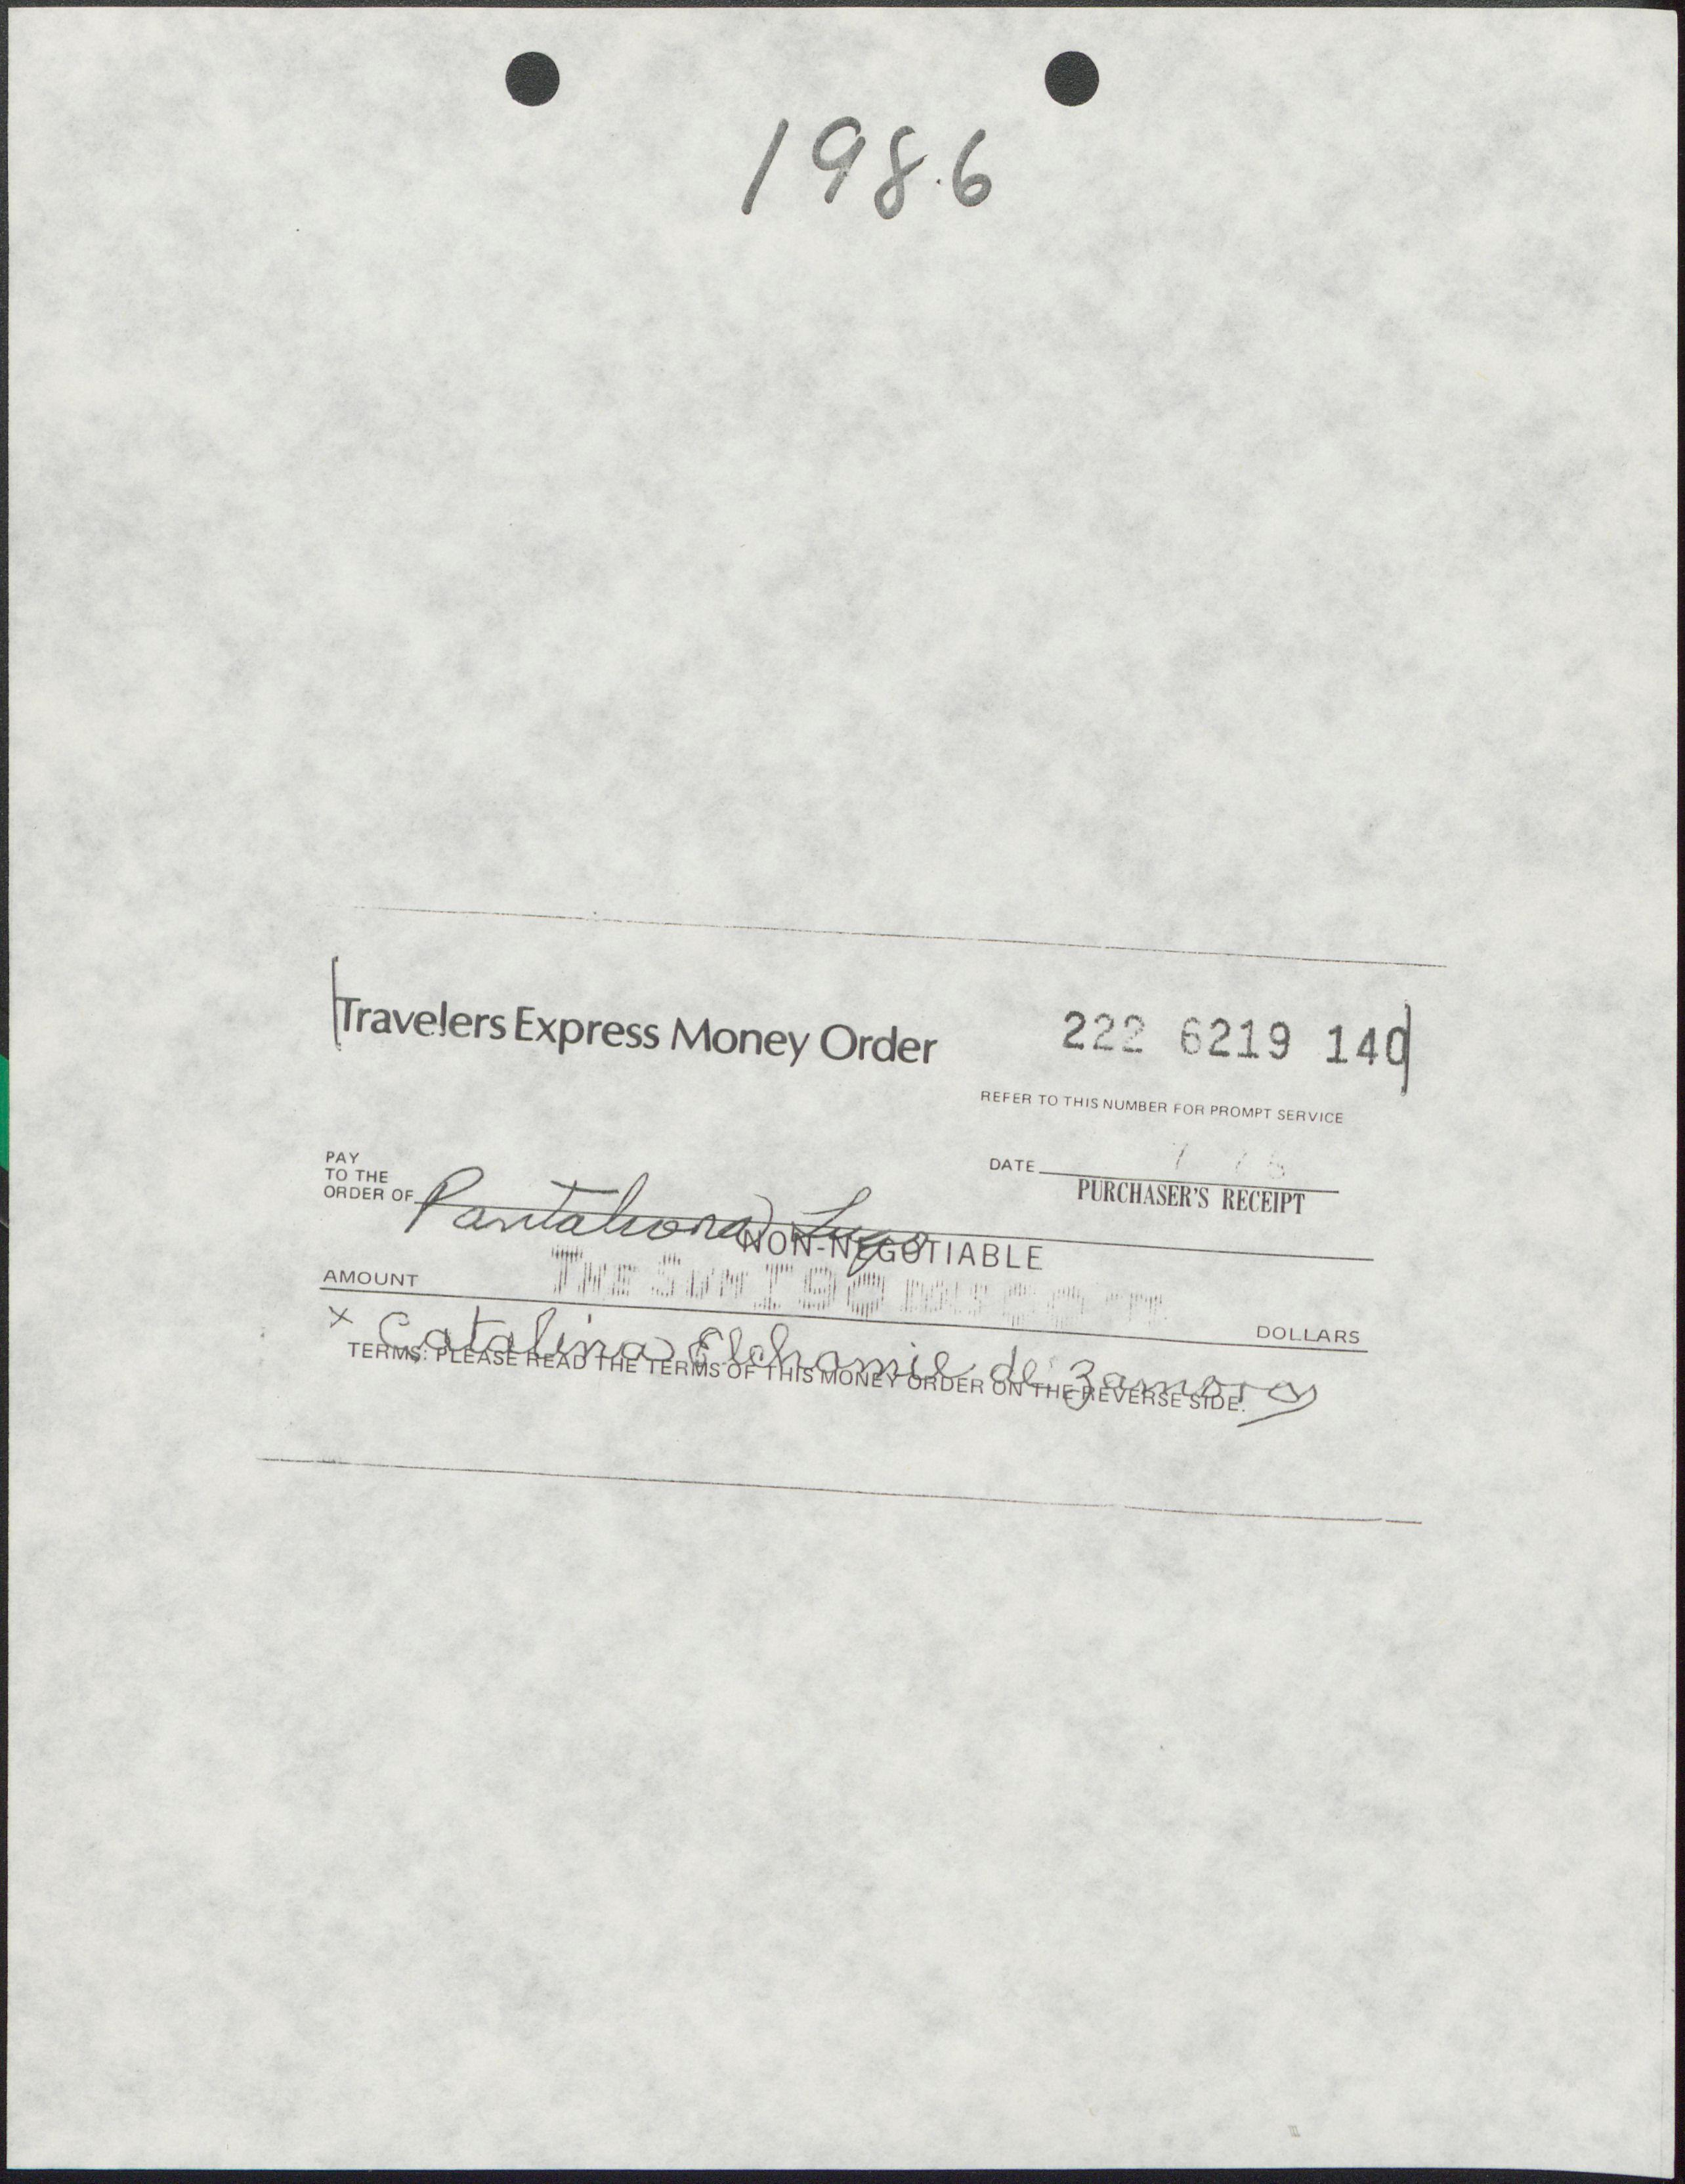 1986
Travelers Express Money Order 222 6219 140
REFER TO THIS NUMBER FOR PROMPT SERVICE
PAY
TO THE
ORDER OF Pantaleona Lugo
DATE
PURCHASER'S RECEIPT
NON-NEGOTIABLE
AMOUNT THE SUM DOLLARS
x Catalina de Zamora
TERMS: PLEASE READ THE TERMS OF THIS MONEY ORDER ON THE REVERSE SIDE.